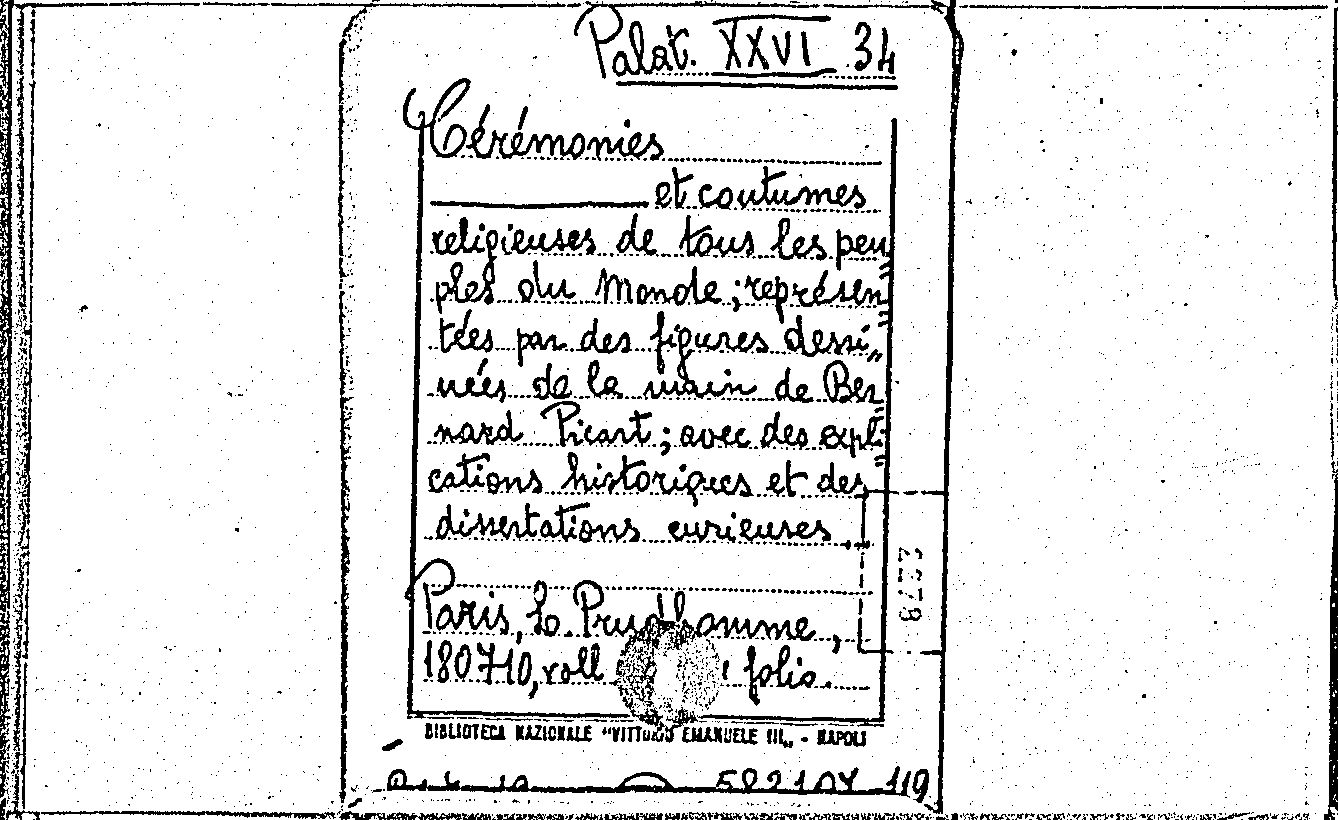 Palat. XXVI 34
Cérémonies
et coutumes
religieuses de tous les peu
ples du Monde; représen„
tées par des figures dessi„
nées de la main de Ber„
nard Picart; avec des expli„
cations historiques et des
dissertations curieuses.
Paris, L. Prudhomme,
1807-10, voll folio.
BIBLIOTECA NAZIONALE "VITTORIO EMANUELE III„ - NAPOLI
119